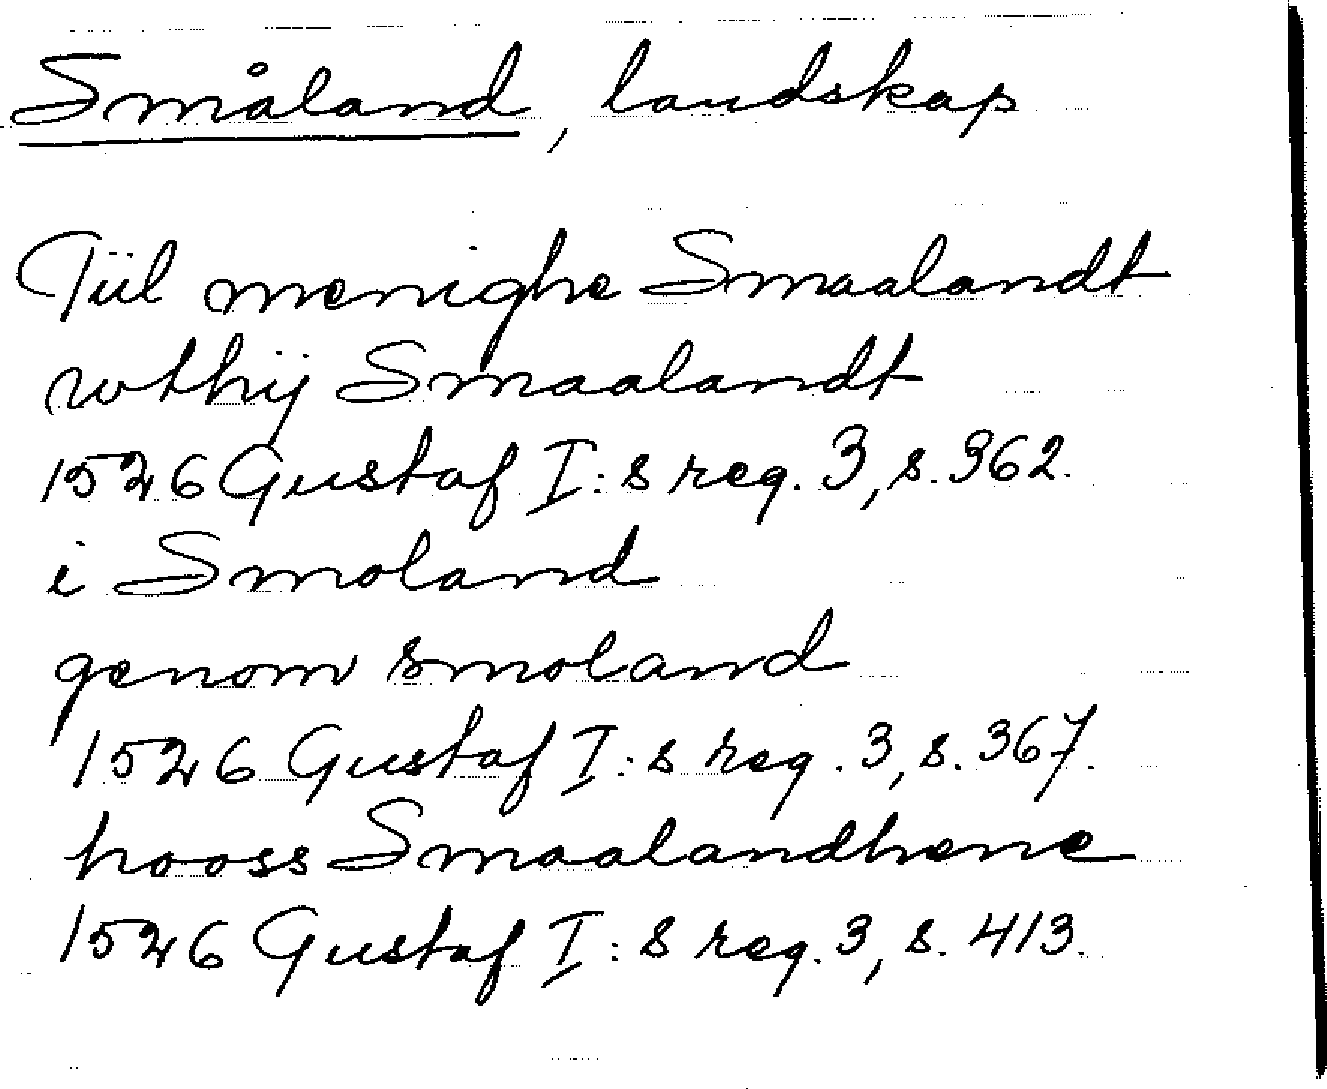 Småland, landskap
Tiil menighe Smaalandt
wthij Smaalandt
1526 Gustaf I:s reg. 3, s. 362.
i Smoland
genom smoland
1526 Gustaf I:s reg. 3, s. 367.
hooss Smaalandhene
1526 Gustaf I:s reg. 3, s. 413.